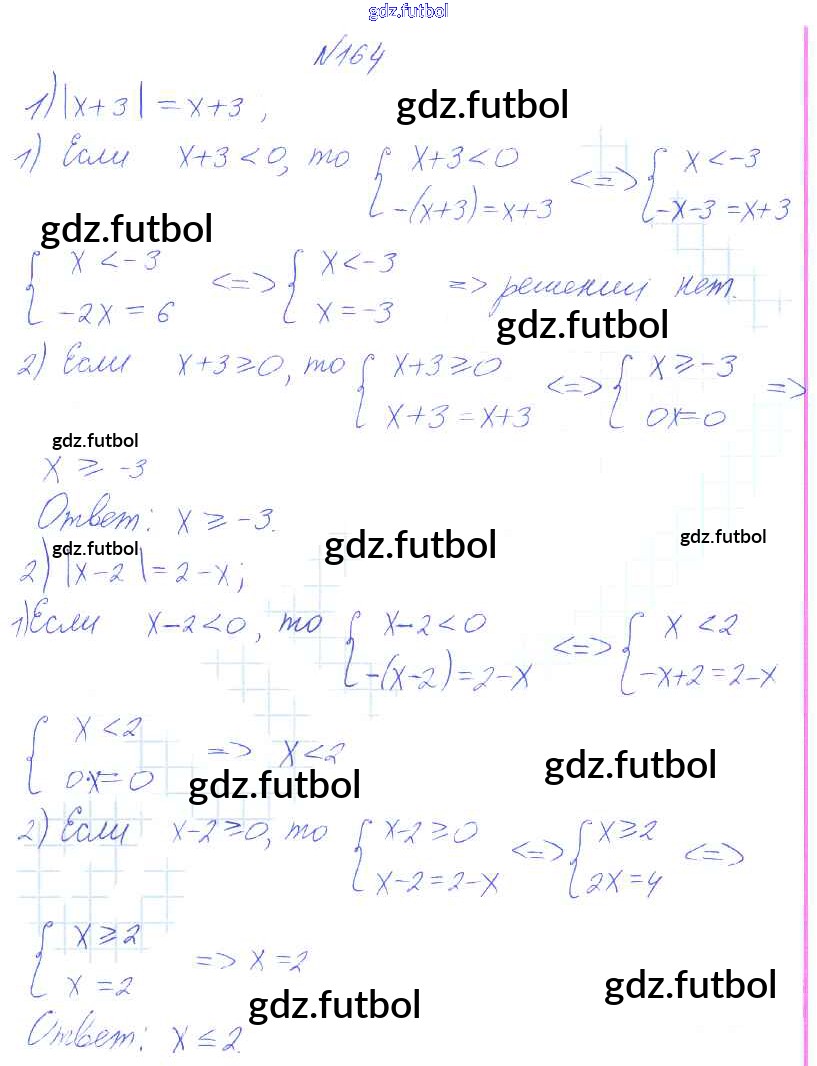 gdz.futbol
N164
1) |x+3| = x+3 ;
gdz.futbol
1) Если x+3<0, то { x+3<0 <=> { x<-3
-(x+3)=x+3 -x-3=x+3
gdz.futbol
{ x<-3 <=> { x<-3 => решений нет.
-2x=6 x=-3
gdz.futbol
2) Если x+3≥0, то { x+3≥0 <=> { x≥-3 =>
x+3=x+3 0x=0
gdz.futbol
x ≥ -3
Ответ: x ≥ -3.
gdz.futbol
gdz.futbol
gdz.futbol
2) |x-2|=2-x;
1) Если x-2<0, то { x-2<0 <=> { x<2
-(x-2)=2-x -x+2=2-x
{ x<2 => x<2
0·x=0
gdz.futbol
gdz.futbol
2) Если x-2≥0, то { x-2≥0 <=> { x≥2 <=>
x-2=2-x 2x=4
{ x≥2 => x=2
x=2
gdz.futbol
gdz.futbol
Ответ: x≤2.